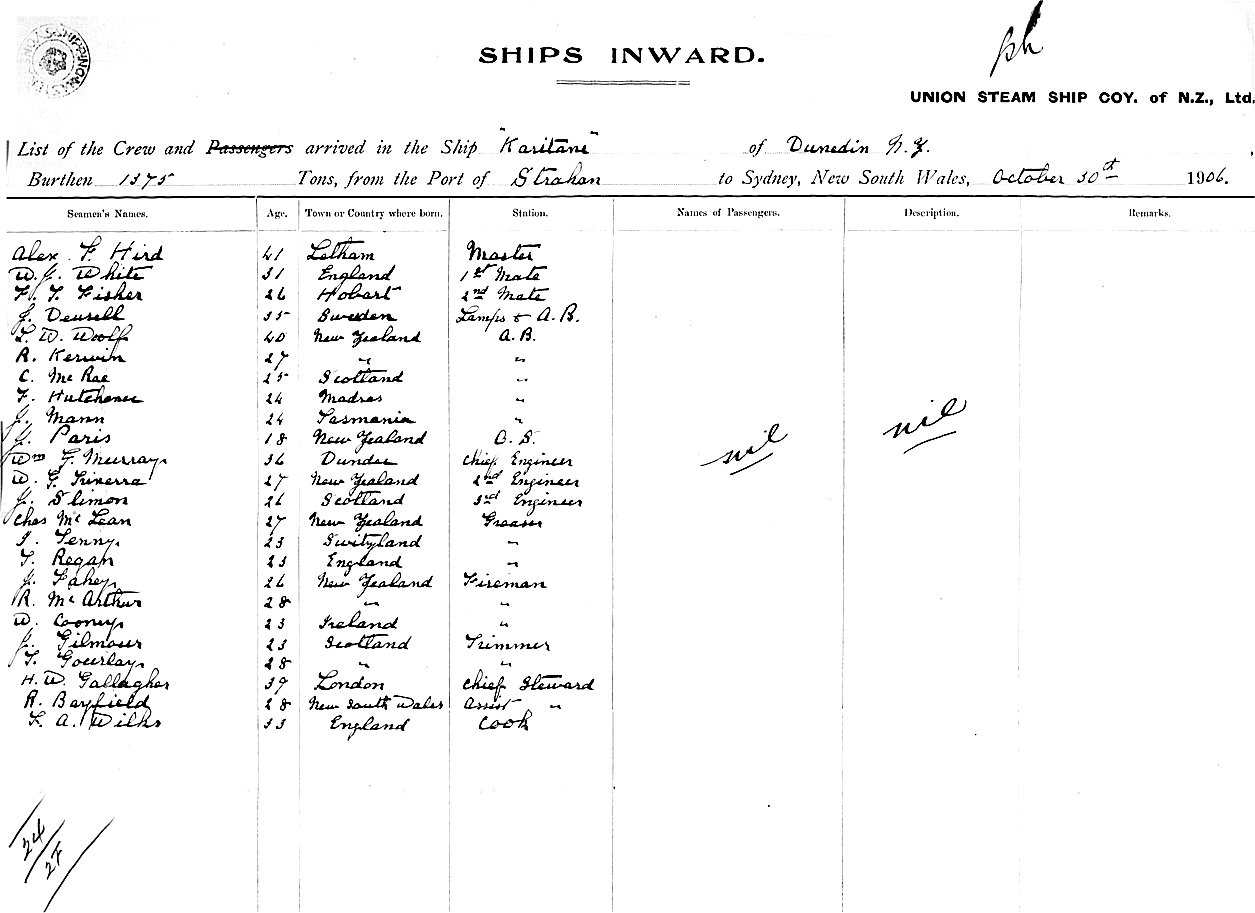 SHIPS INWARD.
UNION STEAM SHIP COY. of N.Z., Ltd.
List of the Crew and Passengers arrived in the Ship "Karitane" of Dunedin N.Z.
Burthen 1375 Tons, from the Port of Strahan to Sydney, New South Wales, October 30th 1906.
Seamen's Names. Age. Town or Country where born. Station. Names of Passengers. Description. Remarks.
Alex F Hird 41 Letham Master
W. J. White 31 England 1st Mate
F. T. Fisher 26 Hobart 2nd Mate
J. Deurell 35 Sweden Lamps & A.B.
L. W. Woolf 40 New Zealand A.B.
R. Kerwin 27 " "
C. McRae 25 Scotland "
F. Hutchence 24 Madras "
J. Mann 24 Tasmania "
J. Paris 18 New Zealand O.S.
Wm G. Murray 36 Dundee Chief Engineer
nil nil
W. G. 27 New Zealand 2nd Engineer
J. Slimon 26 Scotland 3rd Engineer
Chas McLean 27 New Zealand Greaser
J. Jenny 23 Swityland "
T. Regan 23 England "
J. Fahey 26 New Zealand Fireman
R. McArthur 28 " "
W. Cooney 23 Ireland "
J. Gilmour 23 Scotland Trimmer
T. Gourlay 28 " "
H. W. Gallagher 39 London Chief Steward
R. Bayfield 28 New South Wales Assist "
F. A. Wilks 33 England Cook
24/27